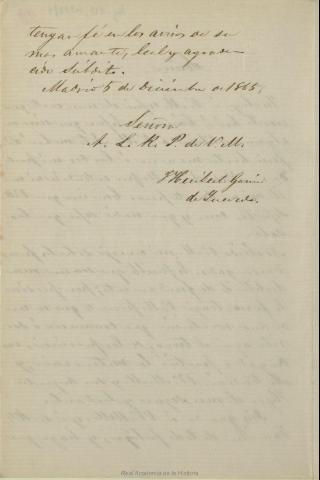 tengan fé en los avisos de su
mas amante, leal y agrade-
cido Súbdito.
Madrid 5 de Diciembre de 1865.
Señora
A. L. R. P. de V. M.
Heriberto García
de Quevedo.
Real Academia de la Historia